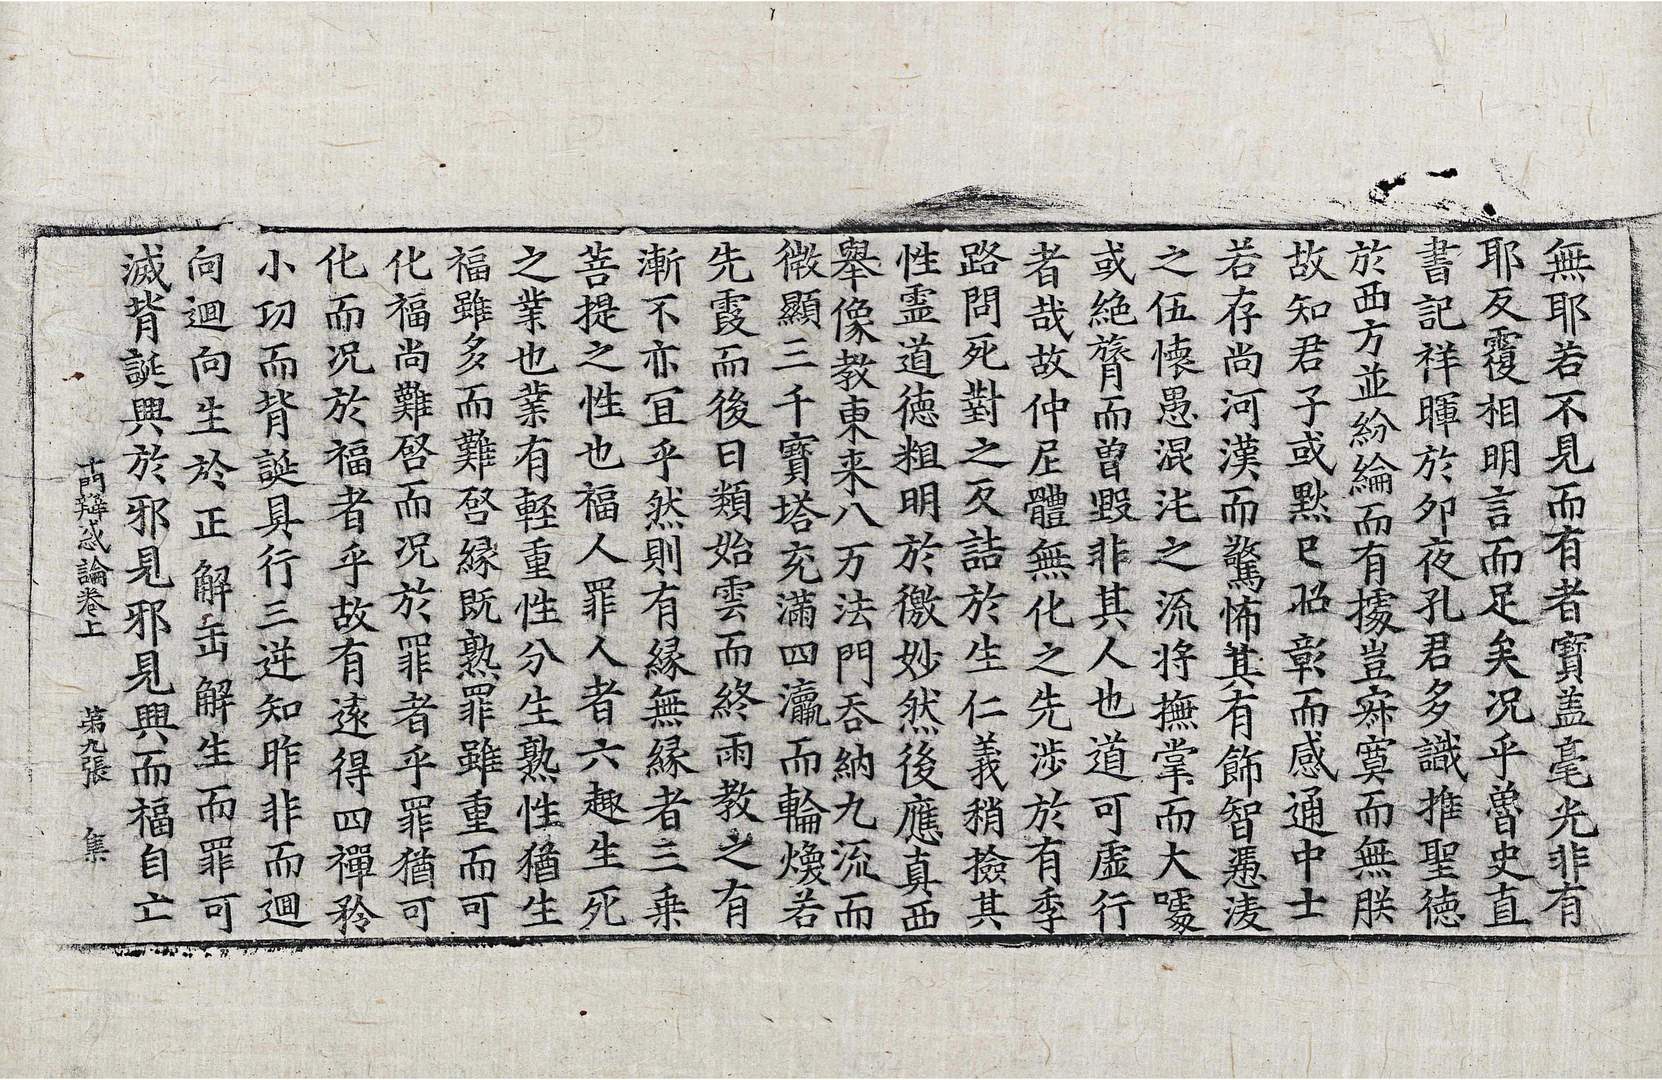 無耶若不見而有者寶盖毫光非有
耶反覆相明言而足矣况乎魯史直
書記祥暉於夘夜孔君多識推聖徳
於西方並紛綸而有據豈寂寞而無朕
故知君子或黙已昭彰而感通中士
若存尚河漢而驚怖其有飾智憑凌
之伍懐愚混沌之流将撫掌而大噱
或絶膂而曽毀非其人也道可虛行
者哉故仲尼體無化之先渉於有季
路問死對之反詰於生仁義稍撿其
性霊道徳粗明於微妙然後應真西
舉像教東来八万法門吞納九流而
微顯三千寳塔充滿四瀛而輪煥若
先霞而後日類始雲而終雨教之有
漸不亦冝乎然則有縁無縁者三乗
菩提之性也福人罪人者六趣生死
之業也業有軽重性分生熟性猶生
福雖多而難啓縁既熟罪雖重而可
化福尚難啓而况於罪者乎罪猶可
化而况於福者乎故有遠得四禪矜
小功而背誕具行三逆知昨非而迴
向迴向生於正解缶解生而罪可
滅背誕興於邪見邪見興而福自亡
十門辯惑論卷上 第九張 集